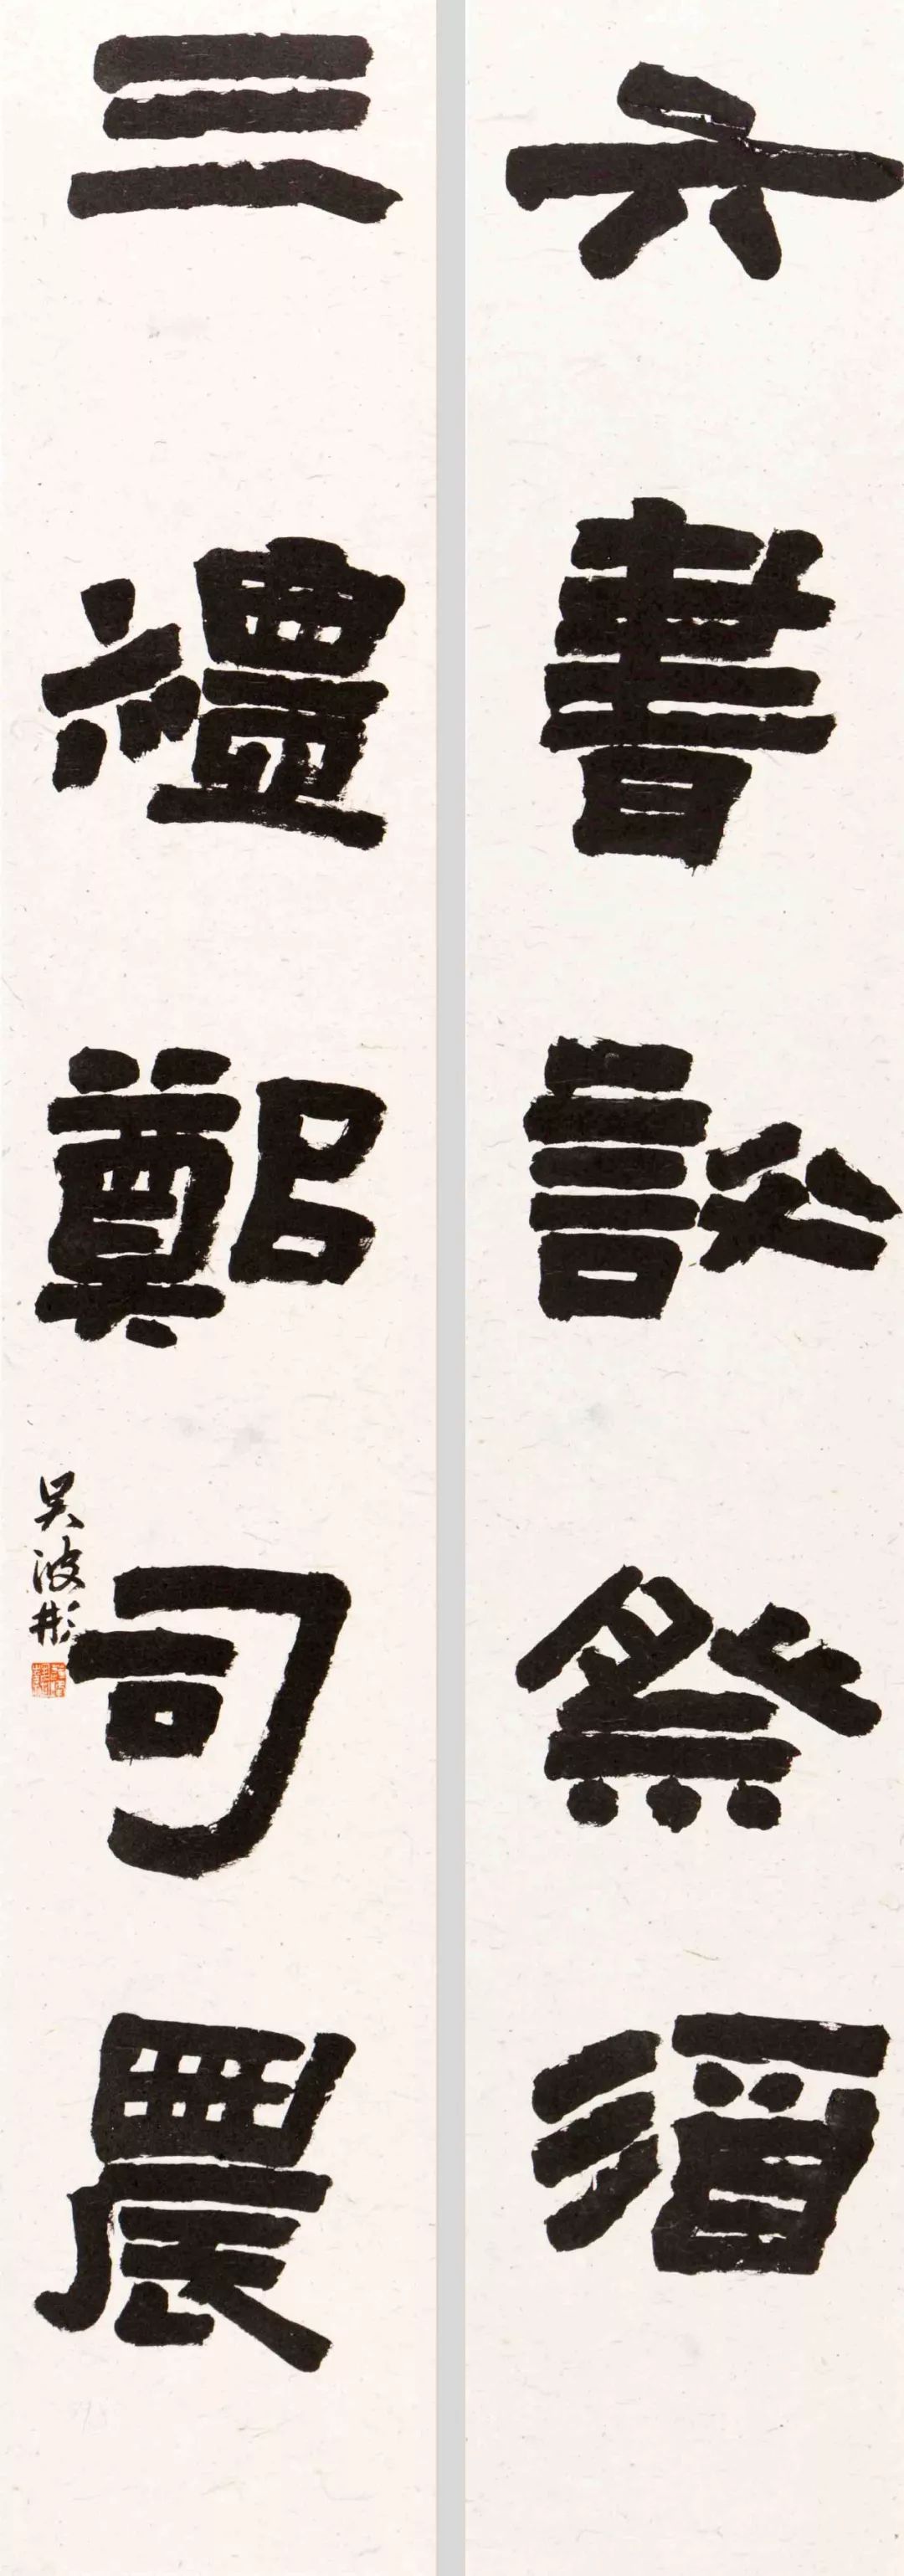 六書許祭酒
三禮鄭司農
吴波彬